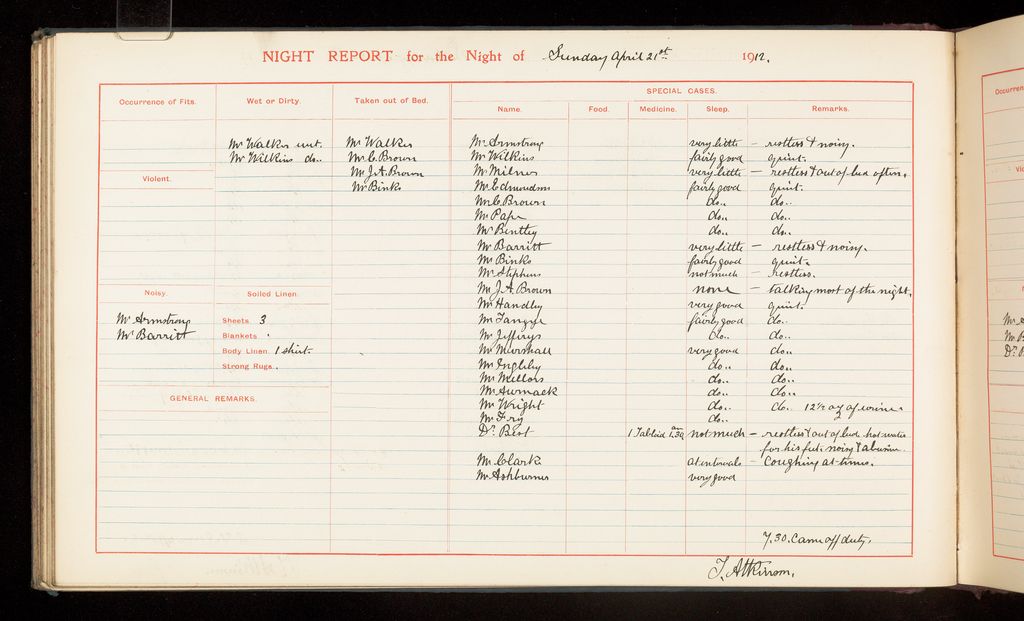 NIGHT REPORT for the Night of Sunday April 21st 1912.
Occurrence of Fits.
Wet or Dirty.
Mr Walker wet.
Mr Wilkins do..
Taken out of Bed.
Mr Walker
Mr C. Brown
Mr J. A. Brown
Mr Binks
Violent.
Noisy.
Mr Armstrong
Mr Barritt
Soiled Linen.
Sheets 3
Blankets
Body Linen 1 shirt.
Strong Rugs.
GENERAL REMARKS.
SPECIAL CASES.
Name. Food. Medicine. Sleep. Remarks.
Mr Armstrong very little – restless & noisy.
Mr Wilkins fairly good quiet.
Mr Milnes very little – restless & out of bed often.
Mr Edmondson fairly good quiet.
Mr C. Brown do.. do..
Mr Pape do.. do..
Mr Bentley do.. do..
Mr Barritt very little – restless & noisy.
Mr Binks fairly good quiet.
Mr Stephens not much – restless.
Mr J. A. Brown none – talking most of the night.
Mr Handley very good quiet.
Mr Tangye fairly good do..
Mr Jefferys do.. do..
Mr Marshall very good do..
Mr Ingleby do.. do..
Mr Mellors do.. do..
Mr do.. do..
Mr Wright do.. do. 12½ oz of urine.
Mr Fry do.. 2
Dr. Best 1 Tabloid 1.30 am not much – restless & out of bed. hot water
for his feet. noisy & abusive.
Mr Clark at intervals – Coughing at times.
Mr Ashburner very good
7.30. Came off duty.
T. Atkinson.
Occurren
Vio
N
Mr A
Mr B
Dr. B